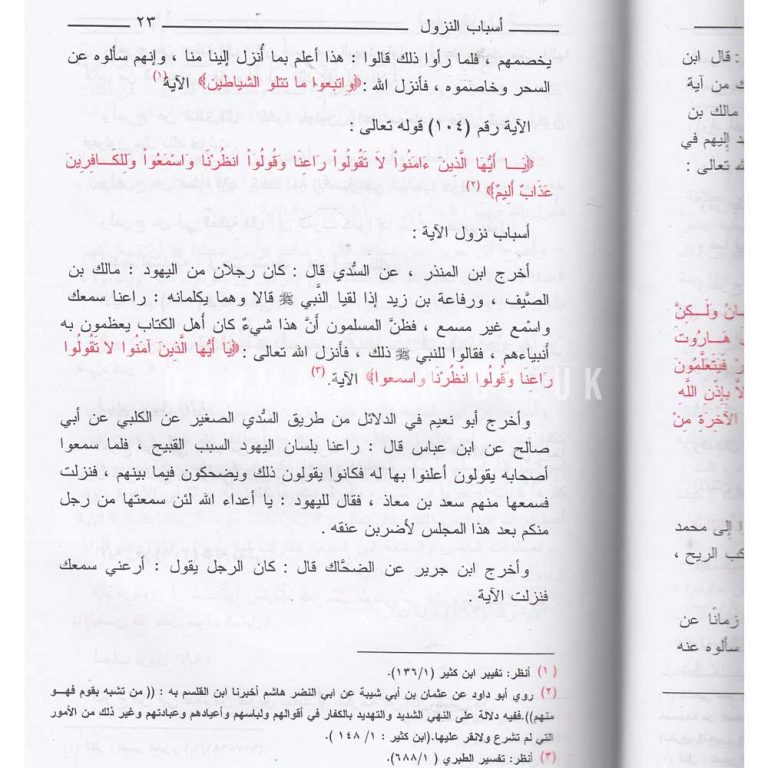 أسباب النزول ٢٣
يخصمهم ، فلما رأوا ذلك قالوا : هذا أعلم بما أُنزل إلينا منا ، وإنهم سألوه عن
السحر وخاصموه ، فأنزل الله :﴿واتبعوا ما تتلو الشياطين﴾ الآية(١)
الآية رقم (١٠٤) قوله تعالى :
﴿يَـا أَيُّهَا الَّذِينَ ءَامَنُواْ لَا تَقُولُواْ رَاعِنَا وَقُولُواْ انظُرْنَا وَاسْمَعُواْ وَلِلكَـافِرِينَ
عَذَابٌ أَلِيمٌ﴾ (٢)
أسباب نزول الآية :
أخرج ابن المنذر ، عن السُّدي قال : كان رجلان من اليهود : مالك بن
الصَّيف ، ورفاعة بن زيد إذا لقيا النَّبي ﷺ قالا وهما يكلمانه : راعنا سمعك
واسْمع غير مسمع ، فظنَّ المسلمون أنَّ هذا شيءٌ كان أهل الكتاب يعظمون به
أنبياءهم ، فقالوا للنبي ﷺ ذلك ، فأنزل الله تعالى :﴿يَا أَيُّهَا الَّذِينَ آمَنُوا لَا تَقُولُوا
رَاعِنَا وَقُولُوا انْظُرْنَا واسمعوا﴾ الآية. (٣)
وأخرج أبو نعيم في الدلائل من طريق السُّدي الصغير عن الكلبي عن أبي
صالح عن ابن عباس قال : راعنا بلسان اليهود السبب القبيح ، فلما سمعوا
أصحابه يقولون أعلنوا بها له فكانوا يقولون ذلك ويضحكون فيما بينهم ، فنزلت
فسمعها منهم سعد بن معاذ ، فقال لليهود : يا أعداء الله لئن سمعتها من رجل
منكم بعد هذا المجلس لأضربن عنقه .
وأخرج ابن جرير عن الضحَّاك قال : كان الرجل يقول : أرعني سمعك
فنزلت الآية .
(١) أنظر: تفيبر ابن كثير (١٣٦/١).
(٢) روي أبو داود عن عثمان بن أبي شيبة عن أبي النضر هاشم أخبرنا ابن القلسم به : (( من تشبه بقوم فهـو
منهم)).ففيه دلالة على النهي الشديد والتهديد بالكفار في أقوالهم ولباسهم وأعيادهم وعبادتهم وغير ذلك من الأمور
التي لم تشرع ولانقر عليها.(ابن كثير : ١/ ١٤٨ ).
(٣) أنظر: تفسير الطبري ( ٦٨٨/١).
: قال ابن
ك من آية
مالك بن
إليهم في
تعالى :
وَلَـكِنَّ
هَـارُوتَ
فَيَتَعَلَّمُونَ
بِإِذْنِ اللَّهِ
الآخِرَةِ مِنْ
إلى محمد
الريح ،
زمانًا عن
سألوه عنه